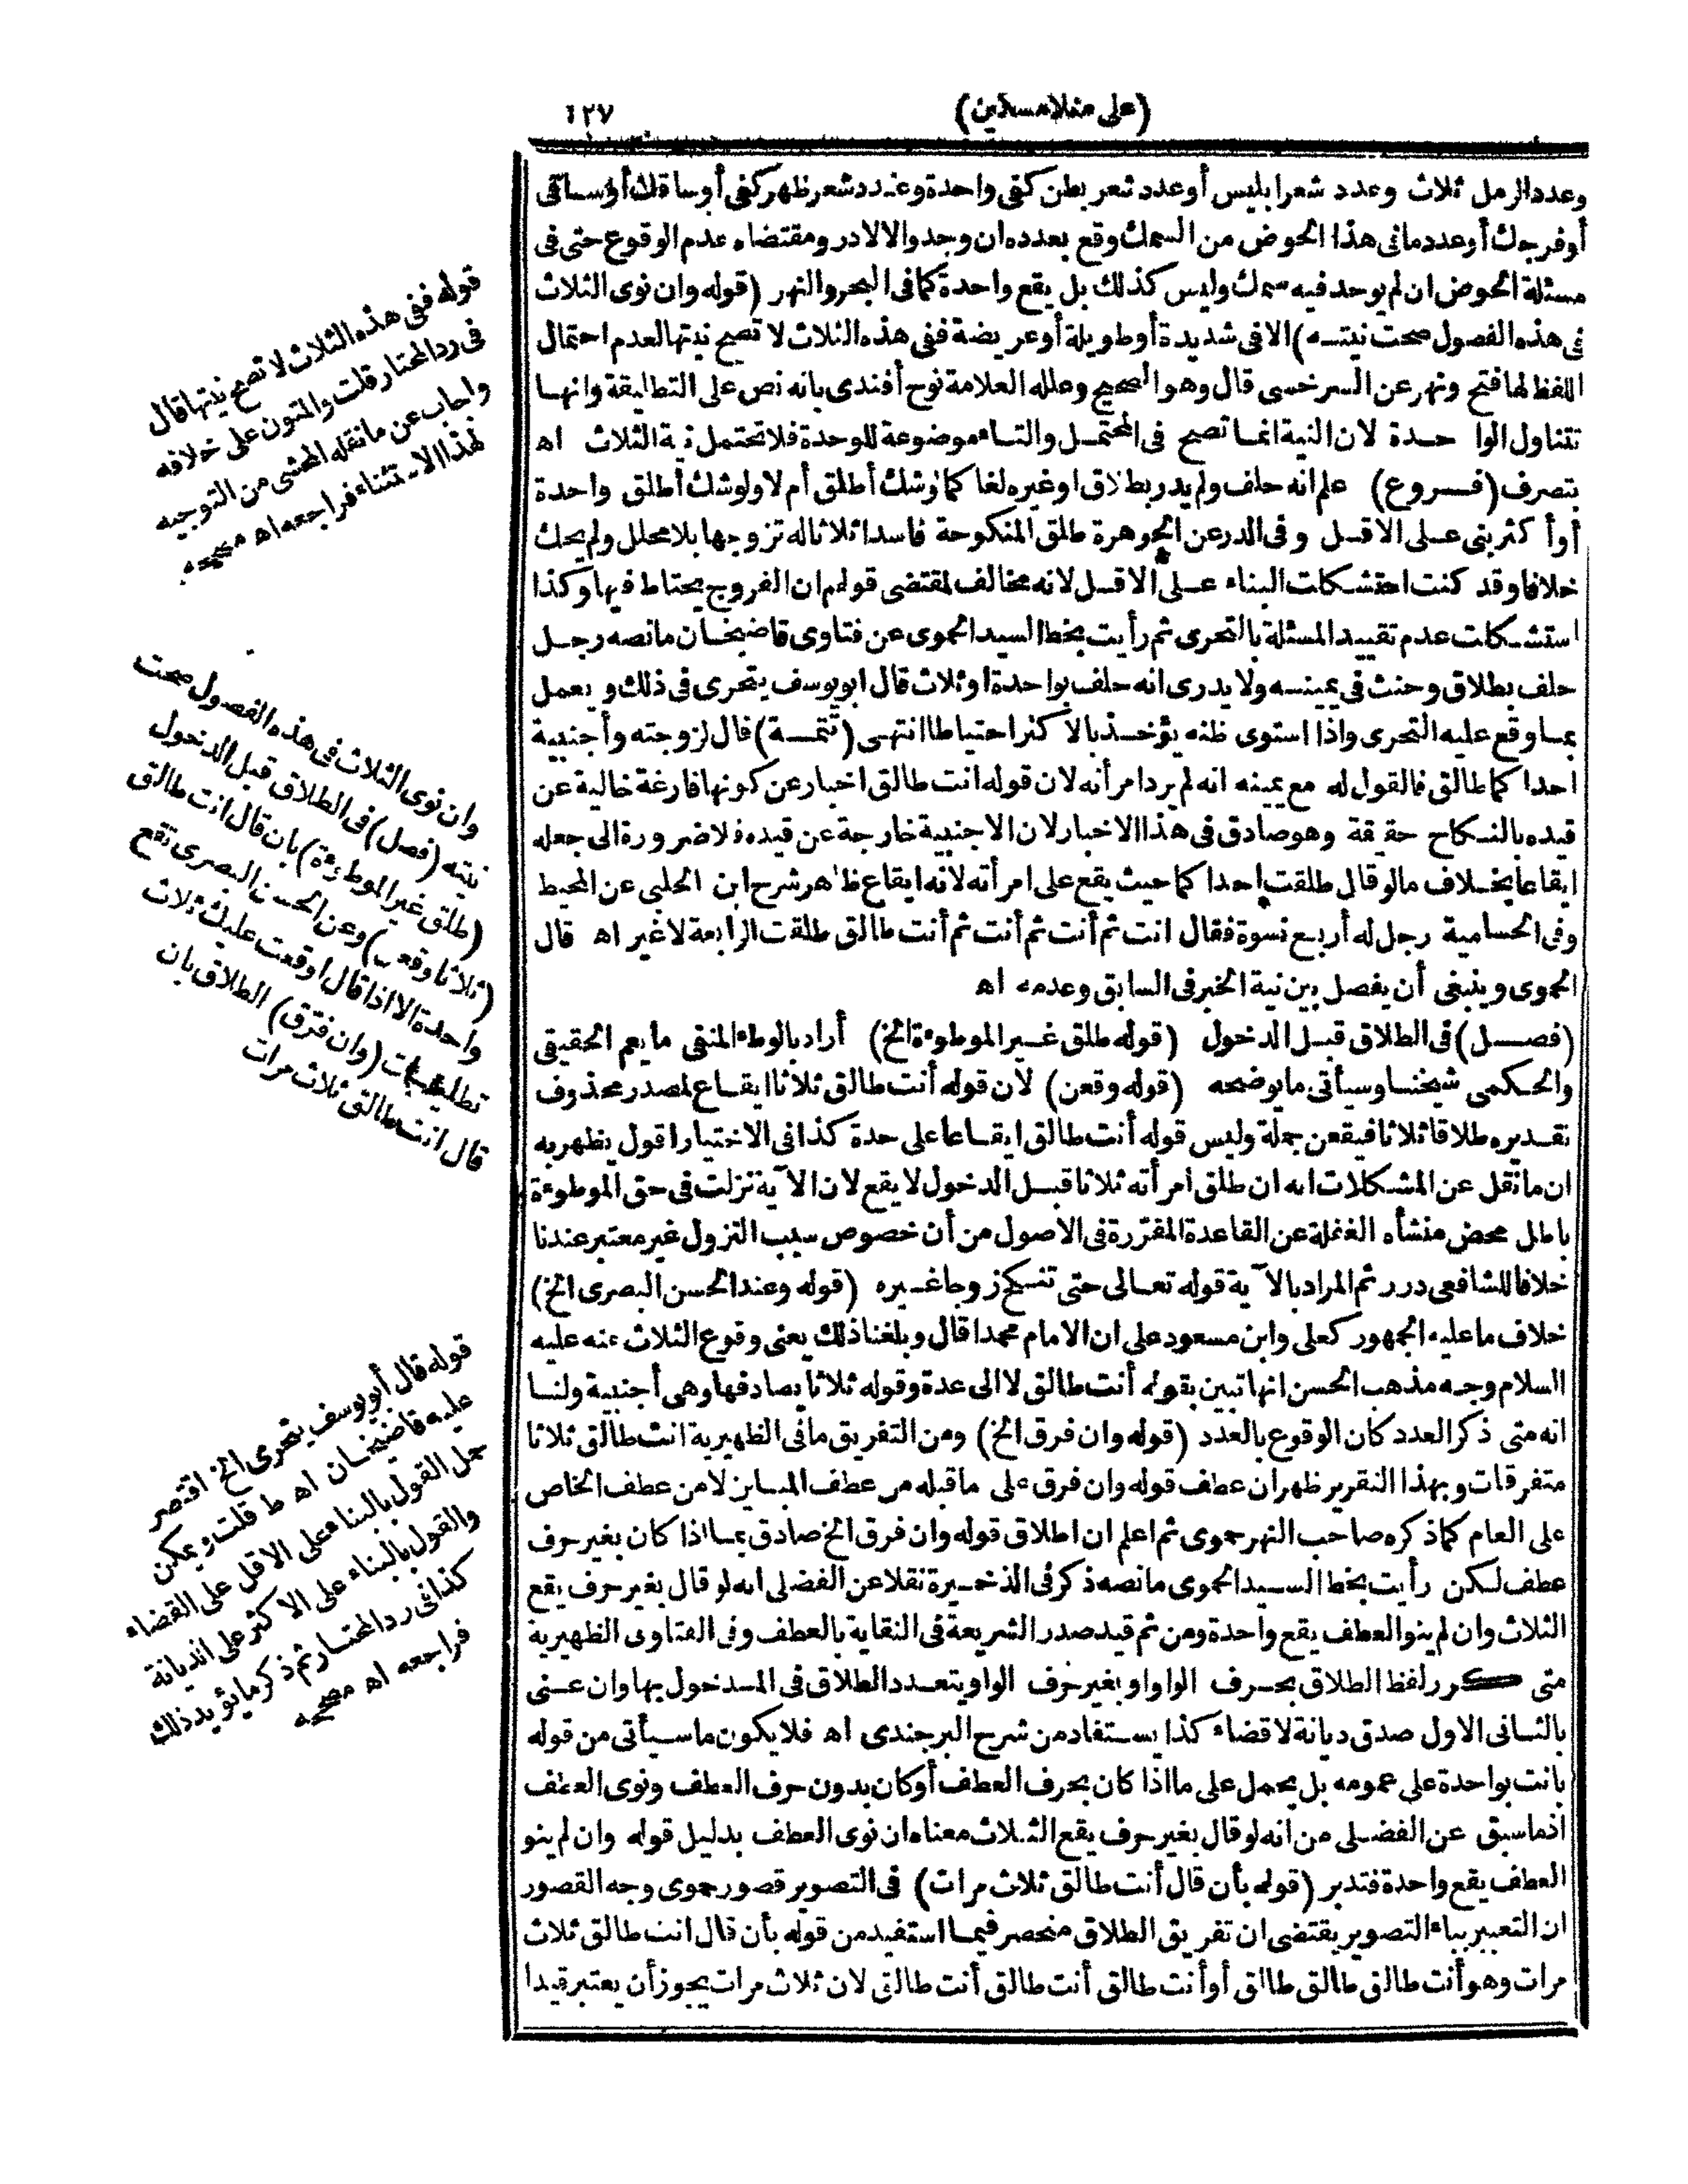 (على منلا مسكين)
١٢٧
وعدد الرمل ثلاث وعدد شعر ابليس أو عدد شعر بطن كفى واحدة وعدد شعر ظهر كفى أو ساقك أو ساقى
أو فرجك أو عدد ما فى هذا الحوض من السمك وقع بعدده ان وجد والا لا در ومقتضاه عدم الوقوع حتى فى
مسئلة الحوض ان لم يوجد فيه سمك وليس كذلك بل يقع واحدة كما فى البحر والنهر (قوله وان نوى الثلاث
فى هذه الفصول صحت نيته) الا فى شديدة أو طويلة أو عريضة ففى هذه الثلاث لا تصح نيتها لعدم احتمال
اللفظ لها فتح ونهر عن السرخسى قال وهو الصحيح وعلله العلامة نوح أفندى بانه نص على التطليقة وانها
تتناول الواحدة لان النية انما تصح فى المحتمل والتاء موضوعة للوحدة فلا تحتمل نية الثلاث اه
بتصرف (فروع) علم انه حلف ولم يدر بطلاق او غيره لغا كما لو شك أطلق أم لا ولو شك أطلق واحدة
أو أكثر بنى على الاقل وفى الدر عن الجوهرة طلق المنكوحة فاسدا ثلاثا له تزوجها بلا محلل ولم يحك
خلافا وقد كنت استشكلت البناء على الاقل لانه مخالف لمقتضى قولهم ان الفروج يحتاط فيها وكذا
استشكلت عدم تقييد المسئلة بالتحرى ثم رأيت بخط السيد الحموى عن فتاوى قاضيخان ما نصه رجل
حلف بطلاق وحنث فى يمينه ولا يدرى انه حلف بواحدة او ثلاث قال ابو يوسف يتحرى فى ذلك ويعمل
بما وقع عليه التحرى واذا استوى ظنه يؤخذ بالاكثر احتياطا انتهى (تتمة) قال لزوجته وأجنبية
احداكما طالق فالقول له مع يمينه انه لم يرد امرأته لان قوله انت طالق اخبار عن كونها فارغة خالية عن
قيده بالنكاح حقيقة وهو صادق فى هذا الاخبار لان الاجنبية خارجة عن قيده فلا ضرورة الى جعله
ايقاعا بخلاف ما لو قال طلقت احداكما حيث يقع على امرأته لانه ايقاع ظاهر شرح ابن الحلبى عن المحيط
وفى الحسامية رجل له أربع نسوة فقال انت ثم أنت ثم أنت ثم أنت طالق طلقت الرابعة لا غير اه قال
الحموى وينبغى أن يفصل بين نية الخبر فى السابق وعدمه اه
(فصل) فى الطلاق قبل الدخول (قوله طلق غير الموطوءة الخ) أراد بالوطء المنفى ما يعم الحقيقى
والحكمى شيخنا وسيأتى ما يوضحه (قوله وقعن) لان قوله أنت طالق ثلاثا ايقاع لمصدر محذوف
تقديره طلاقا ثلاثا فيقعن جملة وليس قوله أنت طالق ايقاعا على حدة كذا فى الاختيار اقول يظهر به
ان ما نقل عن المشكلات انه ان طلق امرأته ثلاثا قبل الدخول لا يقع لان الآية نزلت فى حق الموطوءة
باطل محض منشأه الغفلة عن القاعدة المقررة فى الاصول من أن خصوص سبب النزول غير معتبر عندنا
خلافا للشافعى درر ثم المراد بالآية قوله تعالى حتى تنكح زوجا غيره (قوله وعند الحسن البصرى الخ)
خلاف ما عليه الجمهور كعلى وابن مسعود على ان الامام محمدا قال وبلغنا ذلك يعنى وقوع الثلاث عنه عليه
السلام وجه مذهب الحسن انها تبين بقوله أنت طالق لا الى عدة وقوله ثلاثا يصادفها وهى أجنبية ولنا
انه متى ذكر العدد كان الوقوع بالعدد (قوله وان فرق الخ) ومن التفريق ما فى الظهيرية انت طالق ثلاثا
متفرقات وبهذا التقرير ظهر ان عطف قوله وان فرق على ما قبله من عطف المباين لا من عطف الخاص
على العام كما ذكره صاحب النهر حموى ثم اعلم ان اطلاق قوله وان فرق الخ صادق بما اذا كان بغير حرف
عطف لكن رأيت بخط السيد الحموى ما نصه ذكر فى الذخيرة نقلا عن الفضلى انه لو قال بغير حرف يقع
الثلاث وان لم ينو العطف يقع واحدة ومن ثم قيد صدر الشريعة فى النقاية بالعطف وفى الفتاوى الظهيرية
متى كرر لفظ الطلاق بحرف الواو او بغير حرف الواو يتعدد الطلاق فى المدخول بها وان عنى
بالثانى الاول صدق ديانة لا قضاء كذا يستفاد من شرح البرجندى اه فلا يكون ما سيأتى من قوله
بانت بواحدة على عمومه بل يحمل على ما اذا كان بحرف العطف أو كان بدون حرف العطف ونوى العطف
اذ ما سبق عن الفضلى من انه لو قال بغير حرف يقع الثلاث معناه ان نوى العطف بدليل قوله وان لم ينو
العطف يقع واحدة فتدبر (قوله بأن قال أنت طالق ثلاث مرات) فى التصوير قصور حموى وجه القصور
ان التعبير بباء التصوير يقتضى ان تفريق الطلاق منحصر فيما استفيد من قوله بأن قال انت طالق ثلاث
مرات وهو أنت طالق طالق طالق أو أنت طالق أنت طالق أنت طالق لان ثلاث مرات يجوز أن يعتبر قيدا
قوله ففى هذه الثلاث لا تصح نيتها قال
فى رد المحتار قلت والمتون على خلافه
واجاب عن ما نقله المحشى من التوجيه
لهذا الاستثناء فراجعه اه مصححه
وان نوى الثلاث فى هذه الفصول صحت
نيته (فصل) فى الطلاق قبل الدخول
(طلق غير الموطوءة) بان قال انت طالق
(ثلاثا وقعن) وعن الحسن البصرى تقع
واحدة الا اذا قال اوقعت عليك ثلاث
تطليقات (وان فرق) الطلاق بان
قال انت طالق ثلاث مرات
قوله قال أبو يوسف يتحرى الخ اقتصر
عليه قاضيخان اه ط قلت ويمكن
حمل القول بالبناء على الاقل على القضاء
والقول بالبناء على الاكثر على الديانة
كذا فى رد المحتار ثم ذكر ما يؤيد ذلك
فراجعه اه مصححه